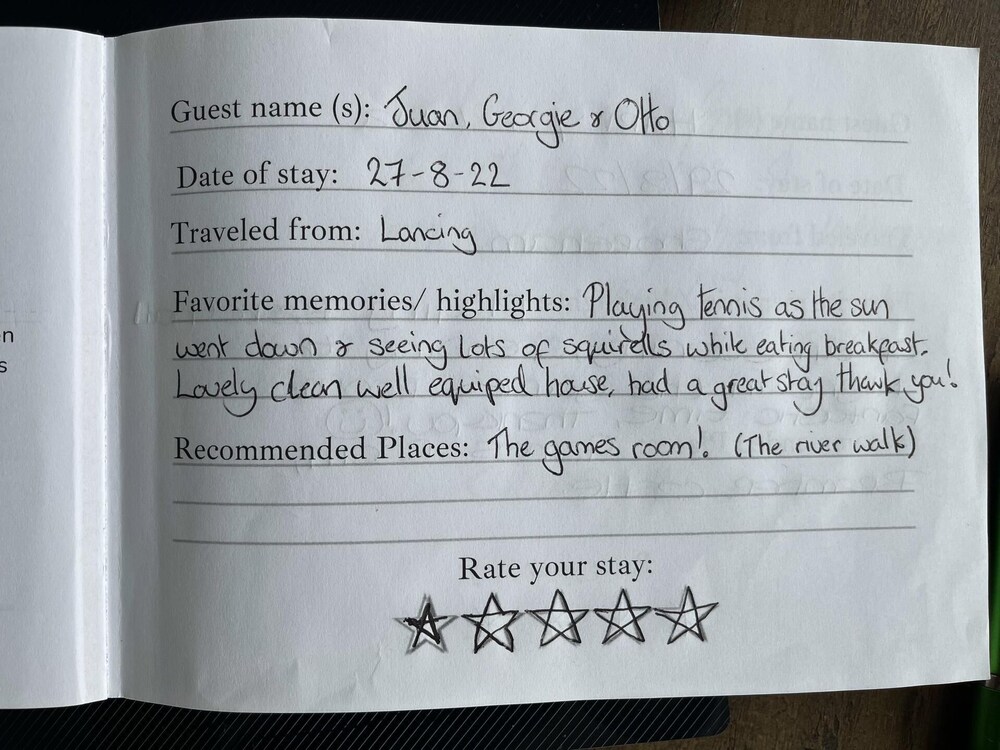 Guest name (s): Juan, Georgie & Otto
Date of stay: 27-8-22
Traveled from: Lancing
Favorite memories/ highlights: Playing tennis as the sun
went down & seeing lots of squirells while eating breakfast.
Lovely clean well equiped house, had a great stay thank you!
Recommended Places: The games room! (The river walk)
Rate your stay:
n
s